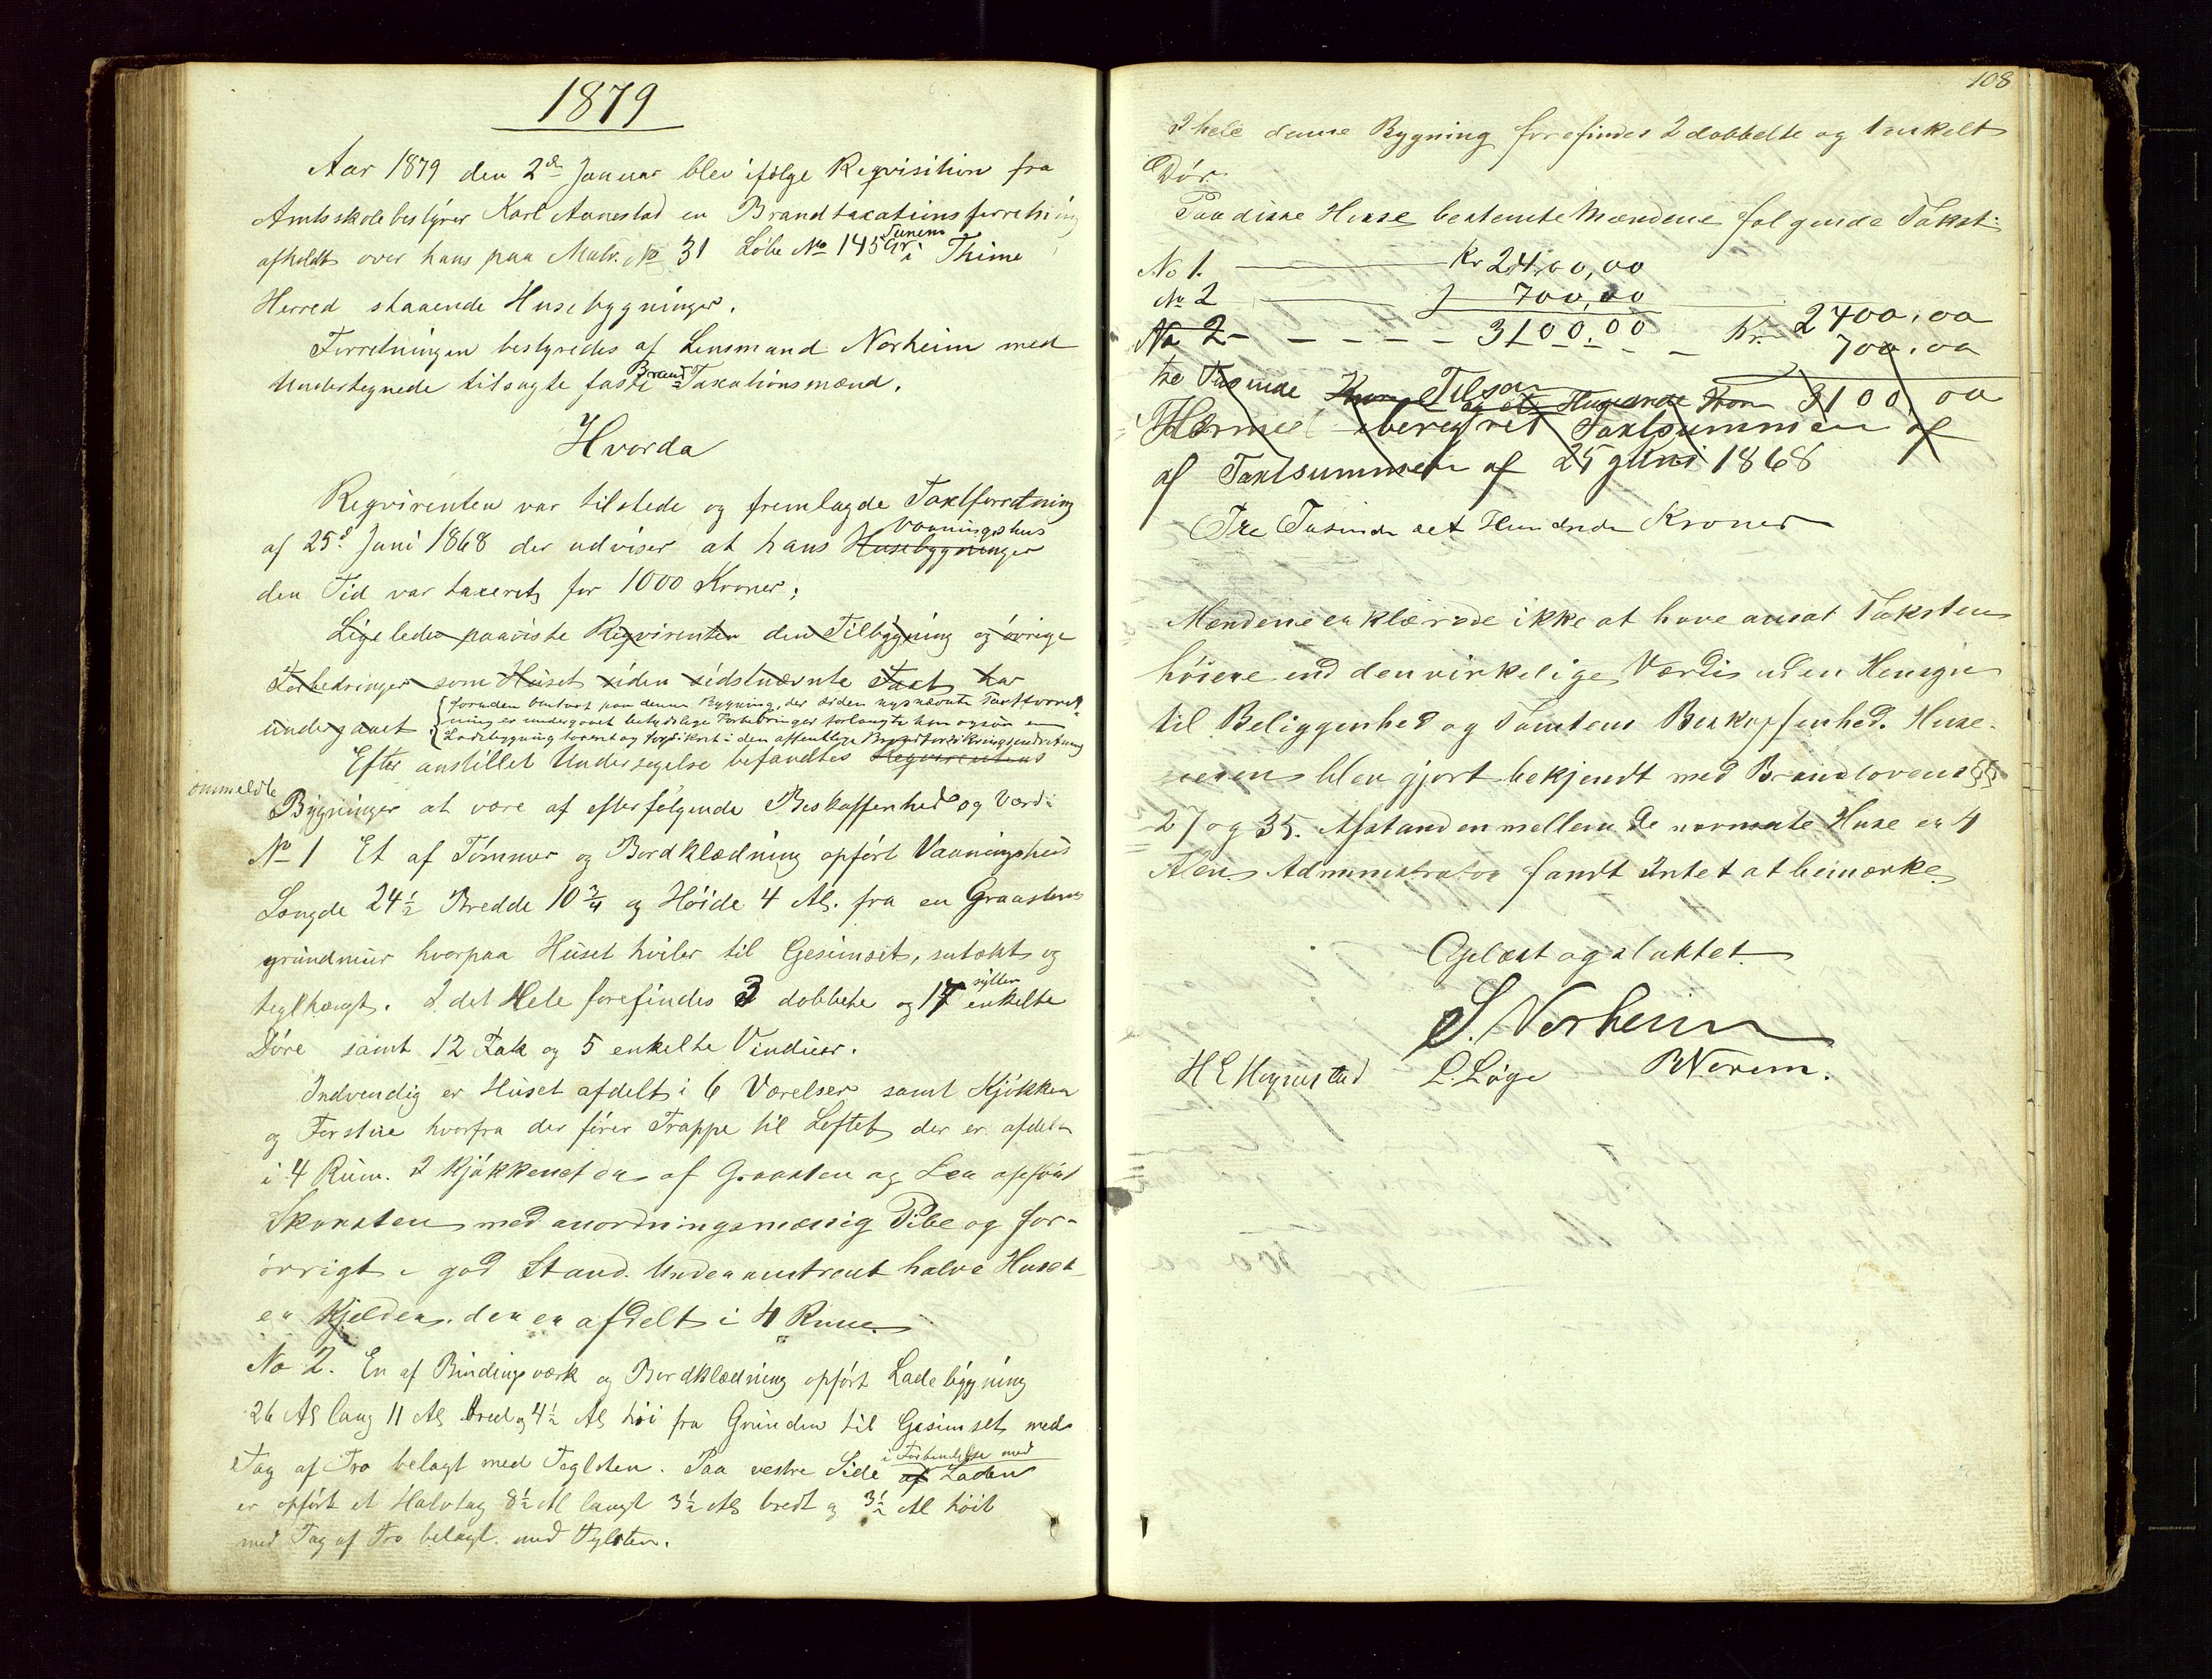 1879
Aar 1879 den 2d Januar blev ifølge Reqvisition fra
Amtsskolebestyrer Karl Aanestad en Brandtaxationsforretning
afholdt over hans paa Matr. No 31 Løbe No 145 i Thime
Herred staaende Husebygninger.
Forretningen bestyredes af Lensmand Norheim med
Undertegnede tilsagte faste Brand-Taxationsmænd.
Hvorda
Reqvirenten var tilstede og fremlagde Taxtforretning
af 25d Juni 1868 der udviser at hans Husebygninger Vaaningshus
den Tid var taxerets for 1000 Kroner;
Ligeledes paaviste Reqvirenten den Tilbygning og øvrige
Forbedringer som Huset siden sidstnævnte Taxt har
undergaaet
foruden omtaxt paa denne Bygning, der siden nysnævnte Taxtforret-
ning er undergaaet betydelige Forbedringer forlangte han ogsaa en
Ladebygning taxeret og forsikret i den offentlige Brandforsikringsindretning
Efter anstillet Undersøgelse befandtes Reqvirentens
ommeldte
Bygninger at være af efterfølgende Beskaffenhed og Værdi
No 1 Et af Tømmer og Bordklædning opført Vaaningshus
Længde 24½ Bredde 10¾ og Høide 4 Al. fra en Graastens
grundmur hvorpaa Huset hviler til Gesimset, sutækt og
teglhængt. I det Hele forefindes 3 dobbelte og 17 enkelte
Døre samt 12 Fak og 5 enkelte Vinduer.
Indvendig er Huset afdelt i 6 Værelser samt Kjøkken
og Forstue hvorfra der fører Trappe til Loftet, der er afdelt
i 4 Rum. I Kjøkkenet er af Graasten og Leer opført
Skorsten med anordningsmæssig Pibe og for-
øvrigt i god Stand. Under omtrent halve Huset
er Kjelder. den er afdelt i 4 Rum.
No 2. En af Bindingsværk og Bordklædning opført Ladebygning
26 Al lang 11 Al bred og 4½ Al høi fra Grunden til Gesimset med
Tag af Tro belagt med Teglsten. Paa vestre Side af i Forbindelse med Laden
er opført et Halvtag 8½ Al langt 3½ Al bredt og 3½ Al høit
med Tag af Tro belagt med Teglsten.
108
I hele denne Bygning forefindes 2 dobbelte og 1 enkelt
Dør.
Paa disse Huse bestemte Mændene følgende Takst:
No 1. Kr 2400,00
No 2 " 700,00
No 2 - - - - - 3100.00 - - - Kr. 2400.00
700.00
tre Tusinde og et Hundrede Kron 3100,00
Hermed Taxtsummen af
af Taxtsummen af 25 Juni 1868
Tre Tusinde eet Hundrede Kroner
Mændene erklærede ikke at have ansat Taksten
høiere end den virkelige Værdi uden Hensyn
til Beliggenhed og Tomtens Beskaffenhed. Huse-
ieren blev gjort bekjendt med Brandlovens §§
27 og 35. Afstanden mellem de nævnte Huse er 4
Alen. Administrator fandt Intet at bemærke.
Oplæst og sluttet.
S. Norheim
H E Hognestad L. Løge B Norem.